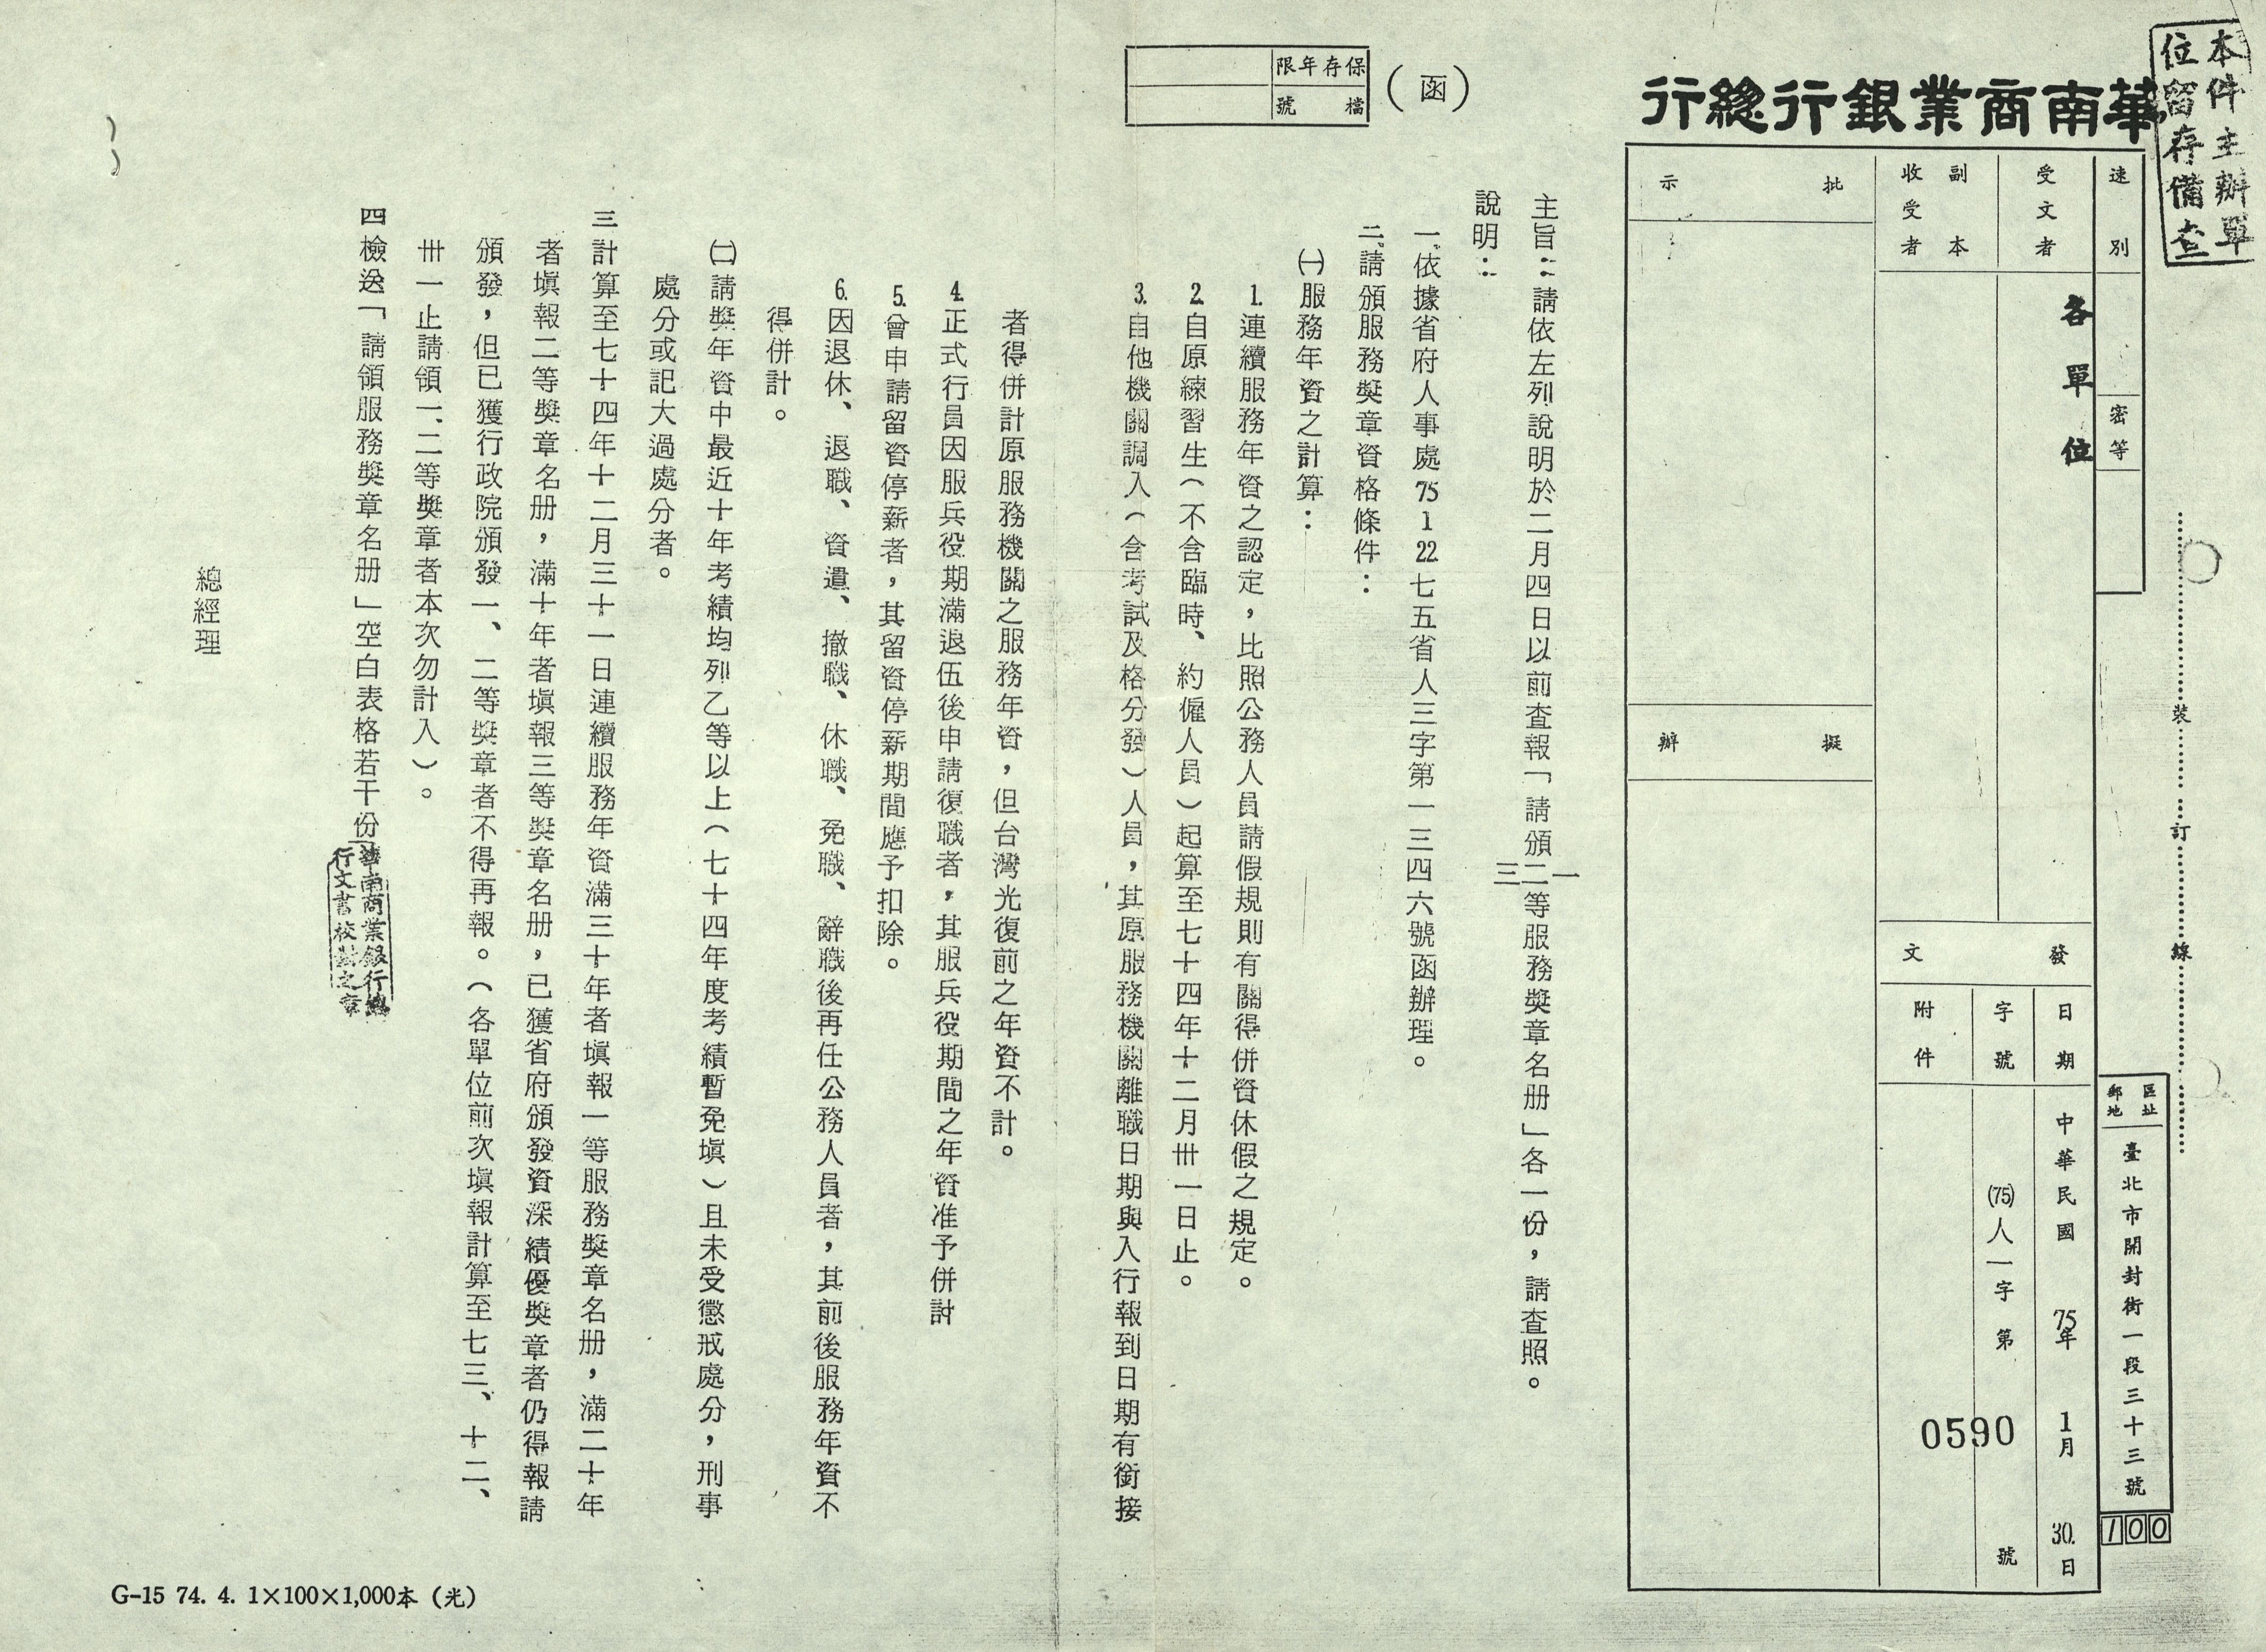 本件主辦單
位留存備查
華南商業銀行總行
(函)
保存年限
檔號
速別
密等
受文者
各單位
副本
收受者
批示
擬辦
發文
日期
中華民國75年1月30.日
字號
(75)人一字第0590號
附件
郵區
地址
臺北市開封街一段三十三號
100
裝訂線
主旨：請依左列說明於二月四日以前查報「請頒一二三等服務獎章名册」各一份，請查照。
說明：
一、依據省府人事處75 1 22七五省人三字第一三四六號函辦理。
二、請頒服務獎章資格條件：
㈠服務年資之計算：
1.連續服務年資之認定，比照公務人員請假規則有關得併資休假之規定。
2.自原練習生（不含臨時、約僱人員）起算至七十四年十二月卅一日止。
3.自他機關調入（含考試及格分發）人員，其原服務機關離職日期與入行報到日期有銜接
者得併計原服務機關之服務年資，但台灣光復前之年資不計。
4.正式行員因服兵役期滿退伍後申請復職者，其服兵役期間之年資准予併計
5.曾申請留資停薪者，其留資停薪期間應予扣除。
6.因退休、退職、資遣、撤職、休職、免職、辭職後再任公務人員者，其前後服務年資不
得併計。
㈡請獎年資中最近十年考績均列乙等以上（七十四年度考績暫免填）且未受懲戒處分，刑事
處分或記大過處分者。
三計算至七十四年十二月三十一日連續服務年資滿三十年者填報一等服務獎章名册，滿二十年
者填報二等獎章名册，滿十年者填報三等獎章名册，已獲省府頒發資深績優獎章者仍得報請
頒發，但已獲行政院頒發一、二等獎章者不得再報。（各單位前次填報計算至七三、十二、
卅一止請領一、二等獎章者本次勿計入）。
四檢送「請領服務獎章名册」空白表格若干份
華南商業銀行總
行文書校對之章
總經理
G-15 74. 4. 1×100×1,000本（光）